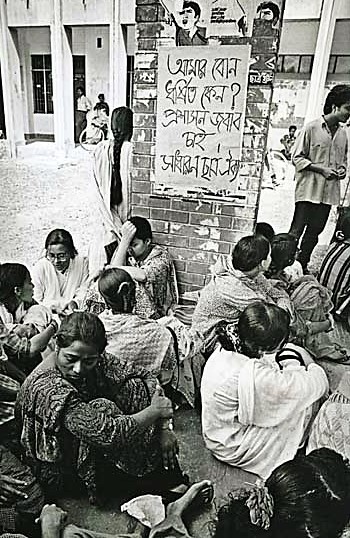 আমার বোন
ধর্ষিত কেন?
প্রশাসন জবাব
চাই
সাধারণ ছাত্র ঐক্য